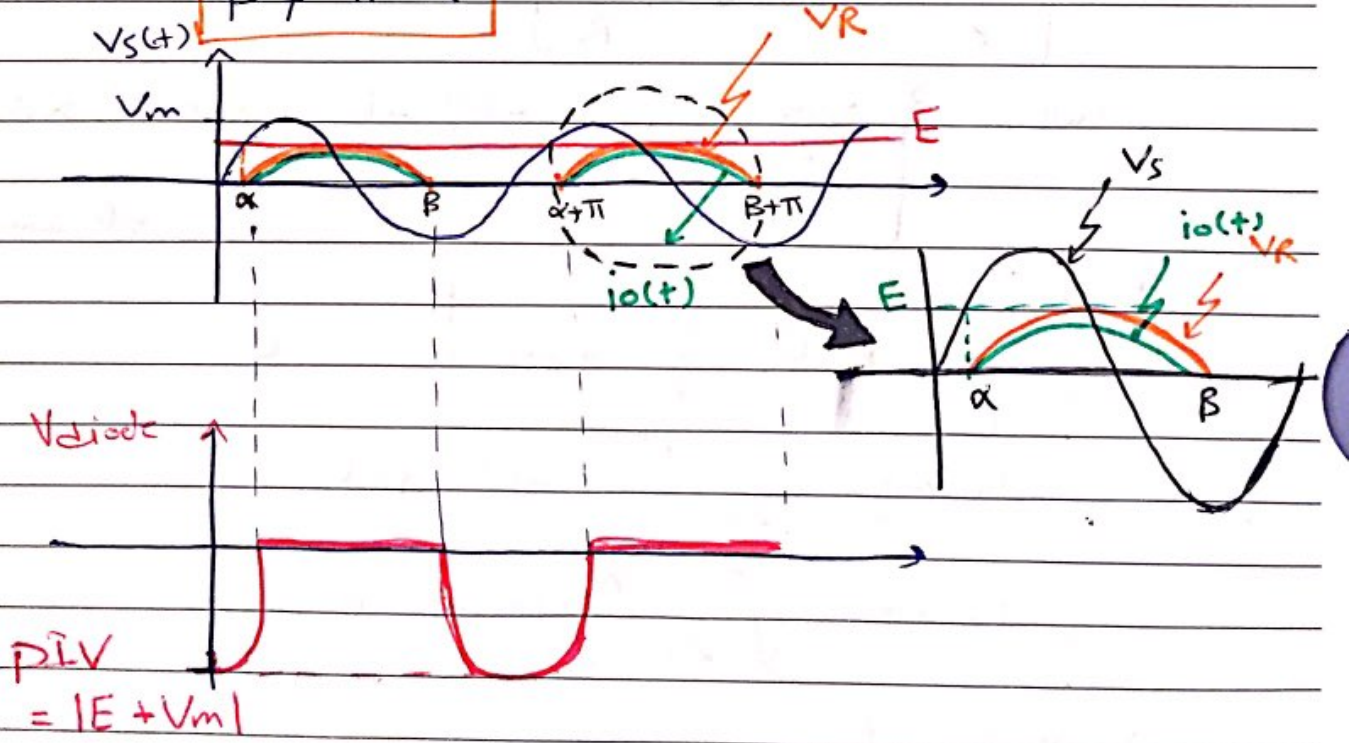 Vs(t)
VR
Vm
E
α
β
α+π
β+π
io(t)
Vs
io(t)
VR
E
α
β
Vdiode
PIV
= |E + Vm|